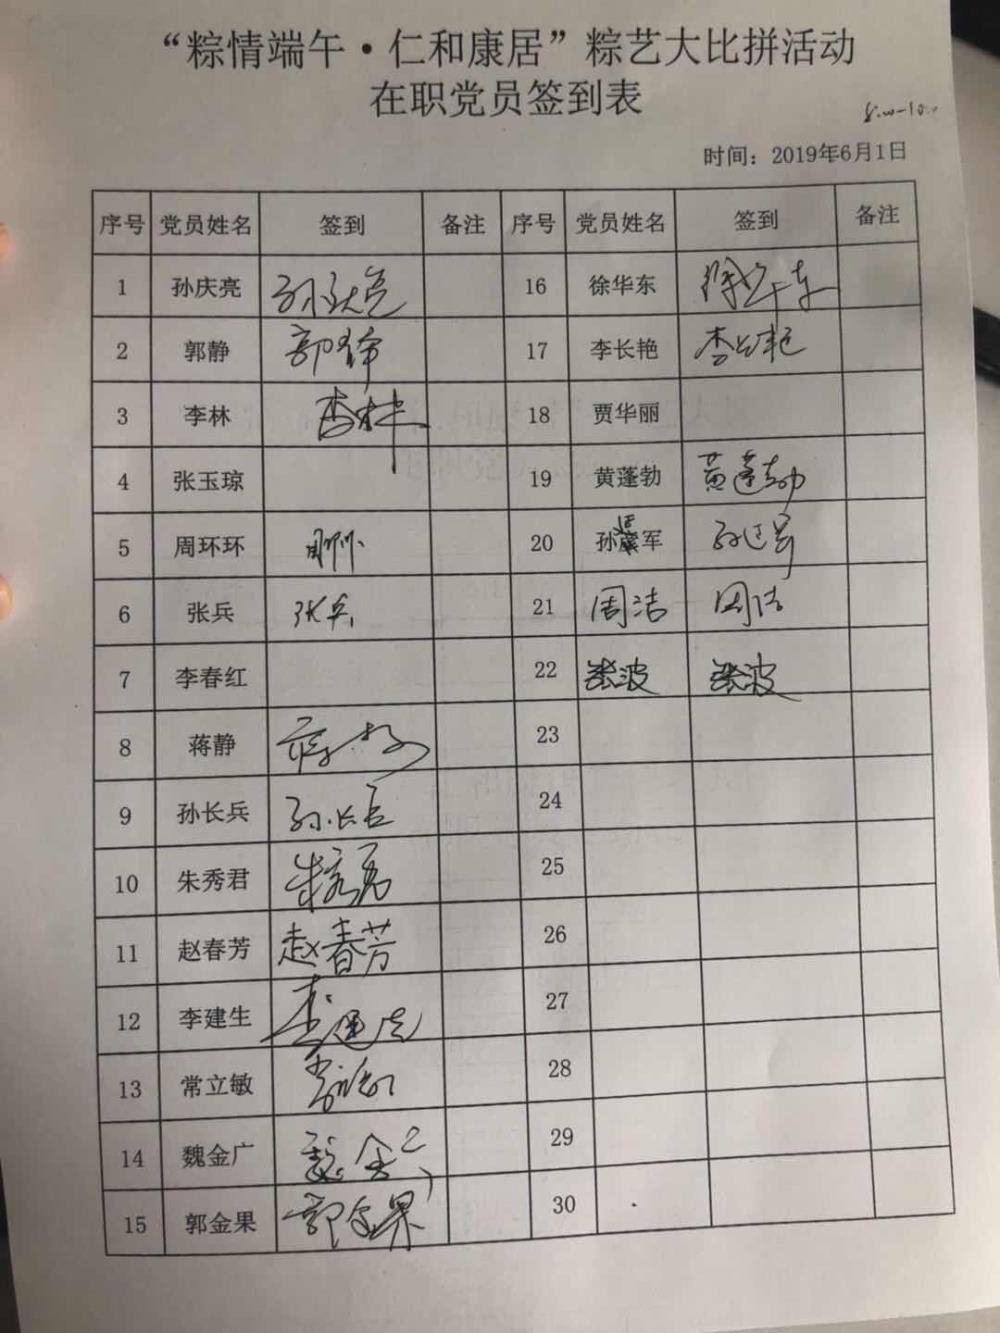 “粽情端午·仁和康居”粽艺大比拼活动
在职党员签到表
8:00-10:00
时间：2019年6月1日
序号 党员姓名 签到 备注 序号 党员姓名 签到 备注
1 孙庆亮 孙庆亮 16 徐华东 徐华东
2 郭静 郭静 17 李长艳 李长艳
3 李林 李林 18 贾华丽
4 张玉琼 19 黄蓬勃 黄蓬勃
5 周环环 周环环 20 孙廷军 孙廷军
6 张兵 张兵 21 周洁 周洁
7 李春红 22 张波 张波
8 蒋静 23
9 孙长兵 孙长兵 24
10 朱秀君 朱秀君 25
11 赵春芳 赵春芳 26
12 李建生 李建生 27
13 常立敏 常立敏 28
14 魏金广 魏金广 29
15 郭金果 郭金果 30